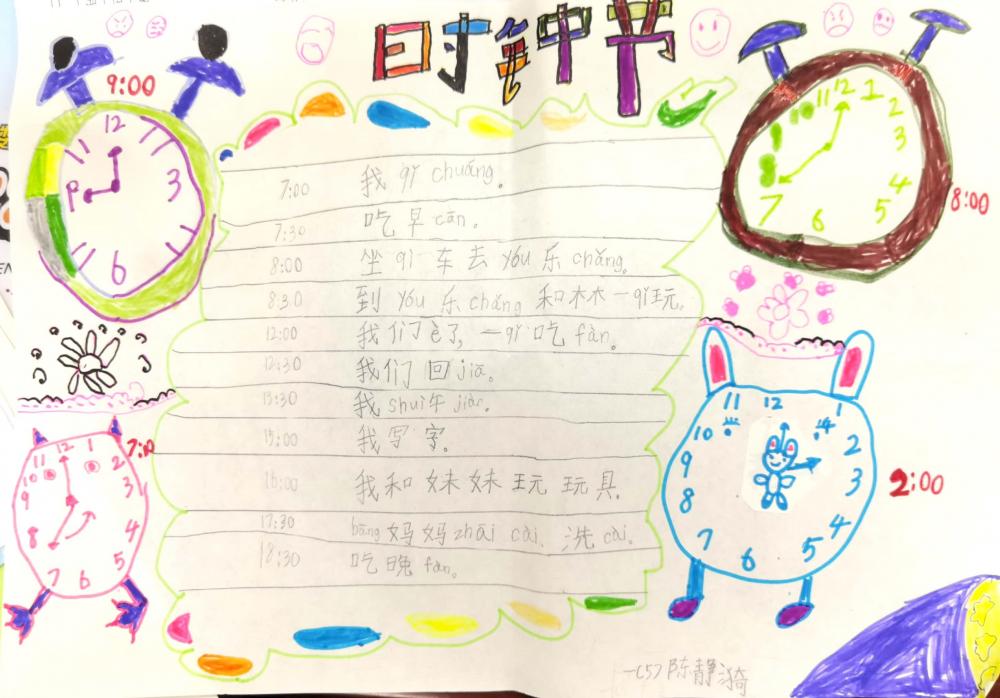 时钟节
9:00
12
9
3
6
11 12 1
10 2
3
8 4
7 6 5
8:00
7:00 我 qǐ chuáng。
7:30 吃 早 cān。
8:00 坐 qì 车 去 yóu 乐 chǎng。
8:30 到 yóu 乐 chǎng 和 林 一 qǐ 玩。
12:00 我们 è 了, 一 qǐ 吃 fàn。
我们 回 jiā。
13:30 我 shuì 午 jiào。
15:00 我 写 字。
16:00 我 和 妹 妹 玩 玩 具
17:30 bāng 妈 妈 zhāi cài、洗 cài。
18:30 吃 晚 fàn。
11 12 1
10 2
9 3
8 4
7 6 5
11 12 1
10 2
9 3
8 4
7 6 5
2:00
一(5) 陈静